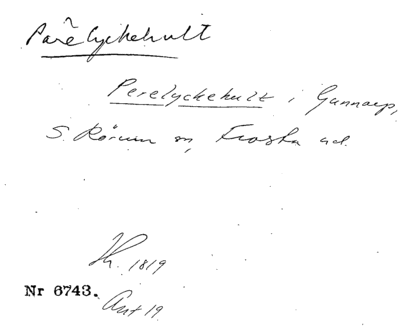 Parelyckehult
Perelyckehult i Gunnarp,
S. Rörum sn, Frosta hd.
Hh. 1819
Nr 6743.
Ant 19